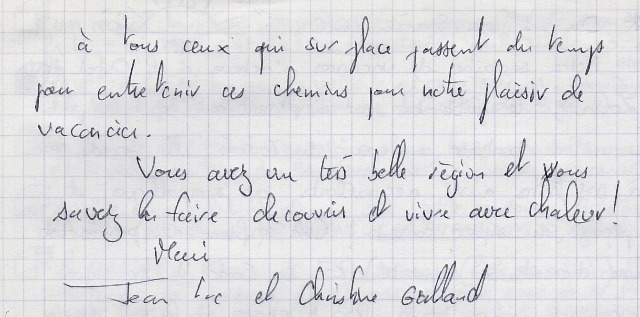 à tous ceux qui sur place passent du temps
pour entretenir ces chemins pour notre plaisir de
vacancier.
Vous avez un très belle région et vous
savez la faire decouvrir et vivre avec chaleur!
Merci
Jean Luc et Christine Galland